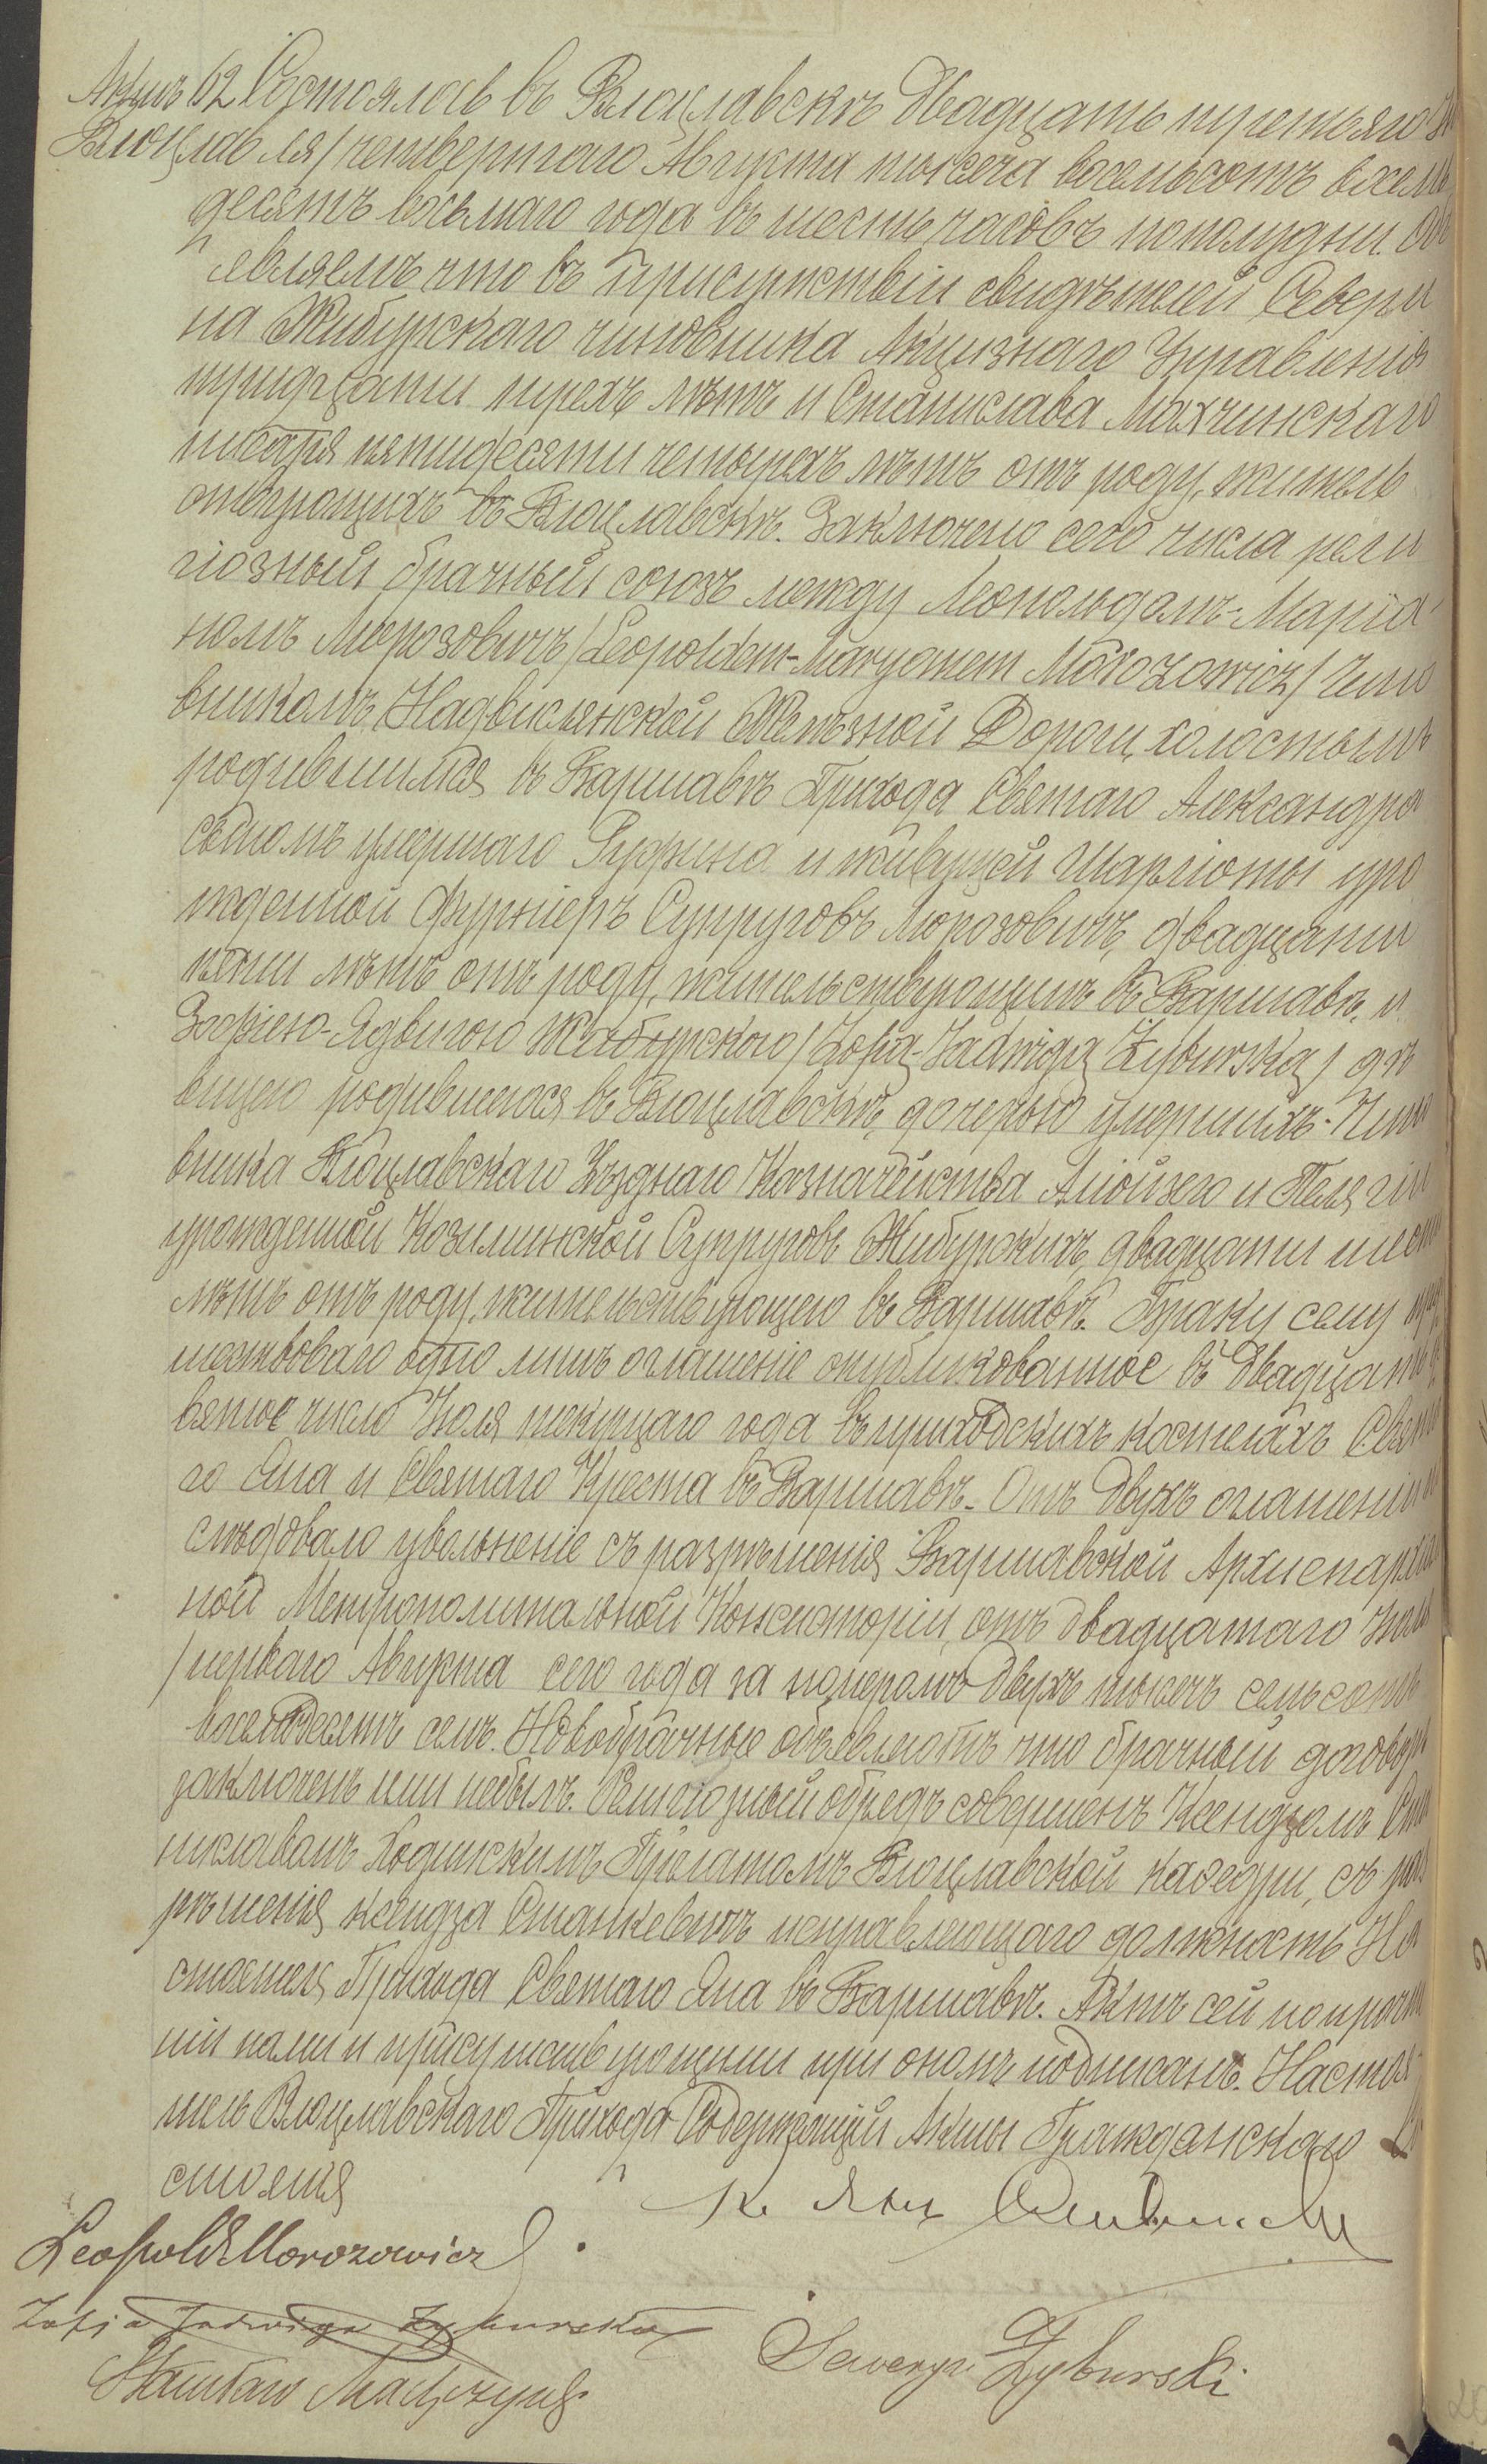 Актъ 62 Состоялось въ Влоцлавскѣ двадцать третьяго
Влоцлавля / четвертаго Августа тысеча восемьсотъ восемь
десятъ восьмаго года въ шесть часовъ пополудни. Объ
являемъ что въ присутствіи свидѣтелей Севери
на Жибурскаго чиновника Акцизнаго Управленія
тридцати трехъ лѣтъ и Станислава Махчинскаго
писаря пятидесяти четырехъ лѣтъ отъ роду, житель
ствующихъ въ Влоцлавскѣ. Заключено сего числа рели
гіозный брачный союзъ между Леопольдомъ-Маріа
номъ Морозовичъ / Leopoldem-Maryanem Morozowicz / Чино
вникомъ Надвислянской Желѣзной Дороги, холостымъ
родившимся въ Варшавѣ Прихода Святаго Александра
сыномъ умершаго Руфина и живущей Шарлоты уро
жденной Фурніеръ Супруговъ Морозовичъ, двадцати
пяти лѣтъ отъ роду, жительствующимъ въ Варшавѣ, и
Зофіею-Ядвигою Жибурскою / Zofią-Jadwigą Żyburską / дѣ
вицею родившеюся въ Влоцлавскѣ, дочерью умершихъ Чино
вника Влоцлавскаго Уѣзднаго Казначейства Алойзего и Пелягіи
урожденной Козилинской Супруговъ Жибурскихъ, двадцати шести
лѣтъ отъ роду, жительствующею въ Варшавѣ. Браку сему пред
шествовало одно лишь оглашеніе опубликованное въ двадцать де
вятое число Іюля текущаго года въ приходскихъ костелахъ Свята
го Яна и Святаго Креста въ Варшавѣ. Отъ двухъ оглашеній
слѣдовало увольненіе съ разрѣшенія Варшавской Архиепархіаль
ной Метрополитальной Консисторіи, отъ двадцатаго Іюля
/ перваго Августа сего года за номеромъ двухъ тысечъ семьсотъ
восемдесятъ семь. Новобрачные объявляютъ что брачный договоръ
заключенъ ими небылъ. Религіозный обрядъ совершенъ Ксендзомъ Ста
ниславомъ Ходынскимъ Прелатомъ Влоцлавской каѳедры, съ раз
рѣшенія ксендза Станкевичъ исправляющаго должность На
стоятеля Прихода Святаго Яна въ Варшавѣ. Актъ сей по прочте
ніи нами и присутствующими при ономъ подписанъ. Настоя
тель Влоцлавскаго Прихода Содержащій Акты Гражданскаго Со
стоянія
К. Янъ
Leopold Morozowicz
Zofija Jadwiga Zyburska
Seweryn Żyburski
Stanisław Machczyński